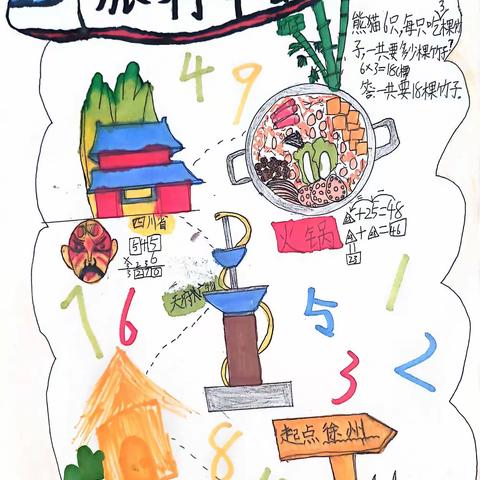 旅行中
熊猫6只,每只吃3棵竹
子,一共要多少棵竹子?
6×3=18(棵)
答:一共要18棵竹子.
4
9
四川省
火锅
△+25=48
△+△=46
23
天府
7
6
5
1
3
2
8
起点徐州